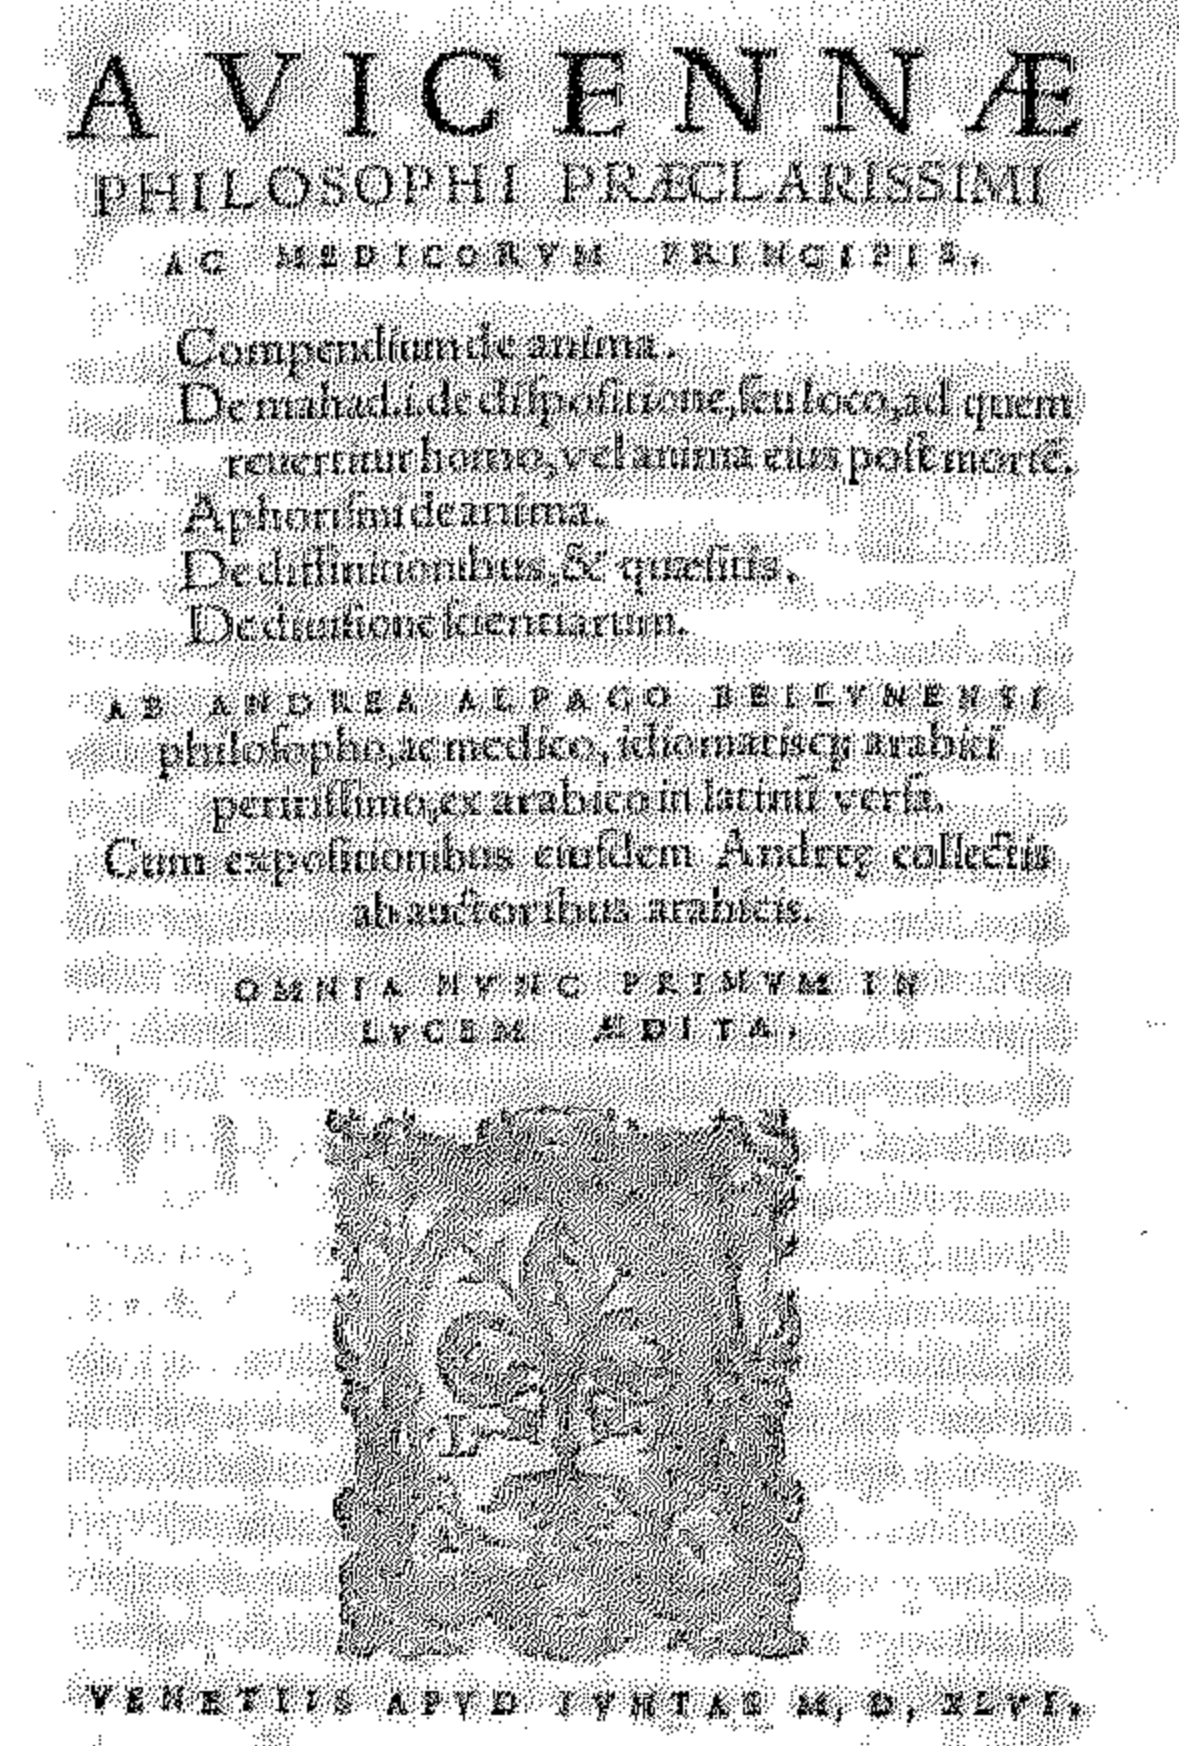 AVICENNÆ
PHILOSOPHI PRÆCLARISSIMI
AC MEDICORVM PRINCIPIS.
Compendium de anima.
De mahad.i.de dispositione,seu loco,ad quem
reuertitur homo,vel anima eius post mortē.
Aphorismi de anima.
De diffinitionibus,& quæsitis.
De diuisione scientiarum.
AB ANDREA ALPAGO BELLVNENSI
philosopho,ac medico, idiomatisq; arabici
peritissimo,ex arabico in latinū versa.
Cum expositionibus eiusdem Andreę collectis
ab auctoribus arabicis.
OMNIA NVNC PRIMVM IN
LVCEM ÆDITA.
L
VENETIIS APVD IVNTAS M, D, XLVI.